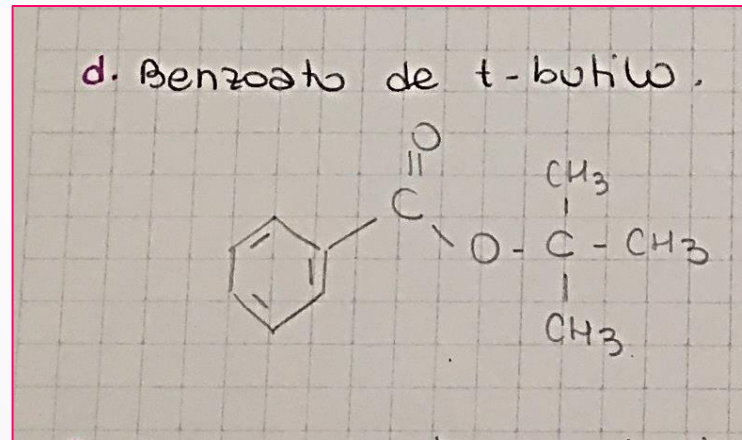 d. Benzoato de t-butilo.
O
CH3
C
O - C - CH3
CH3